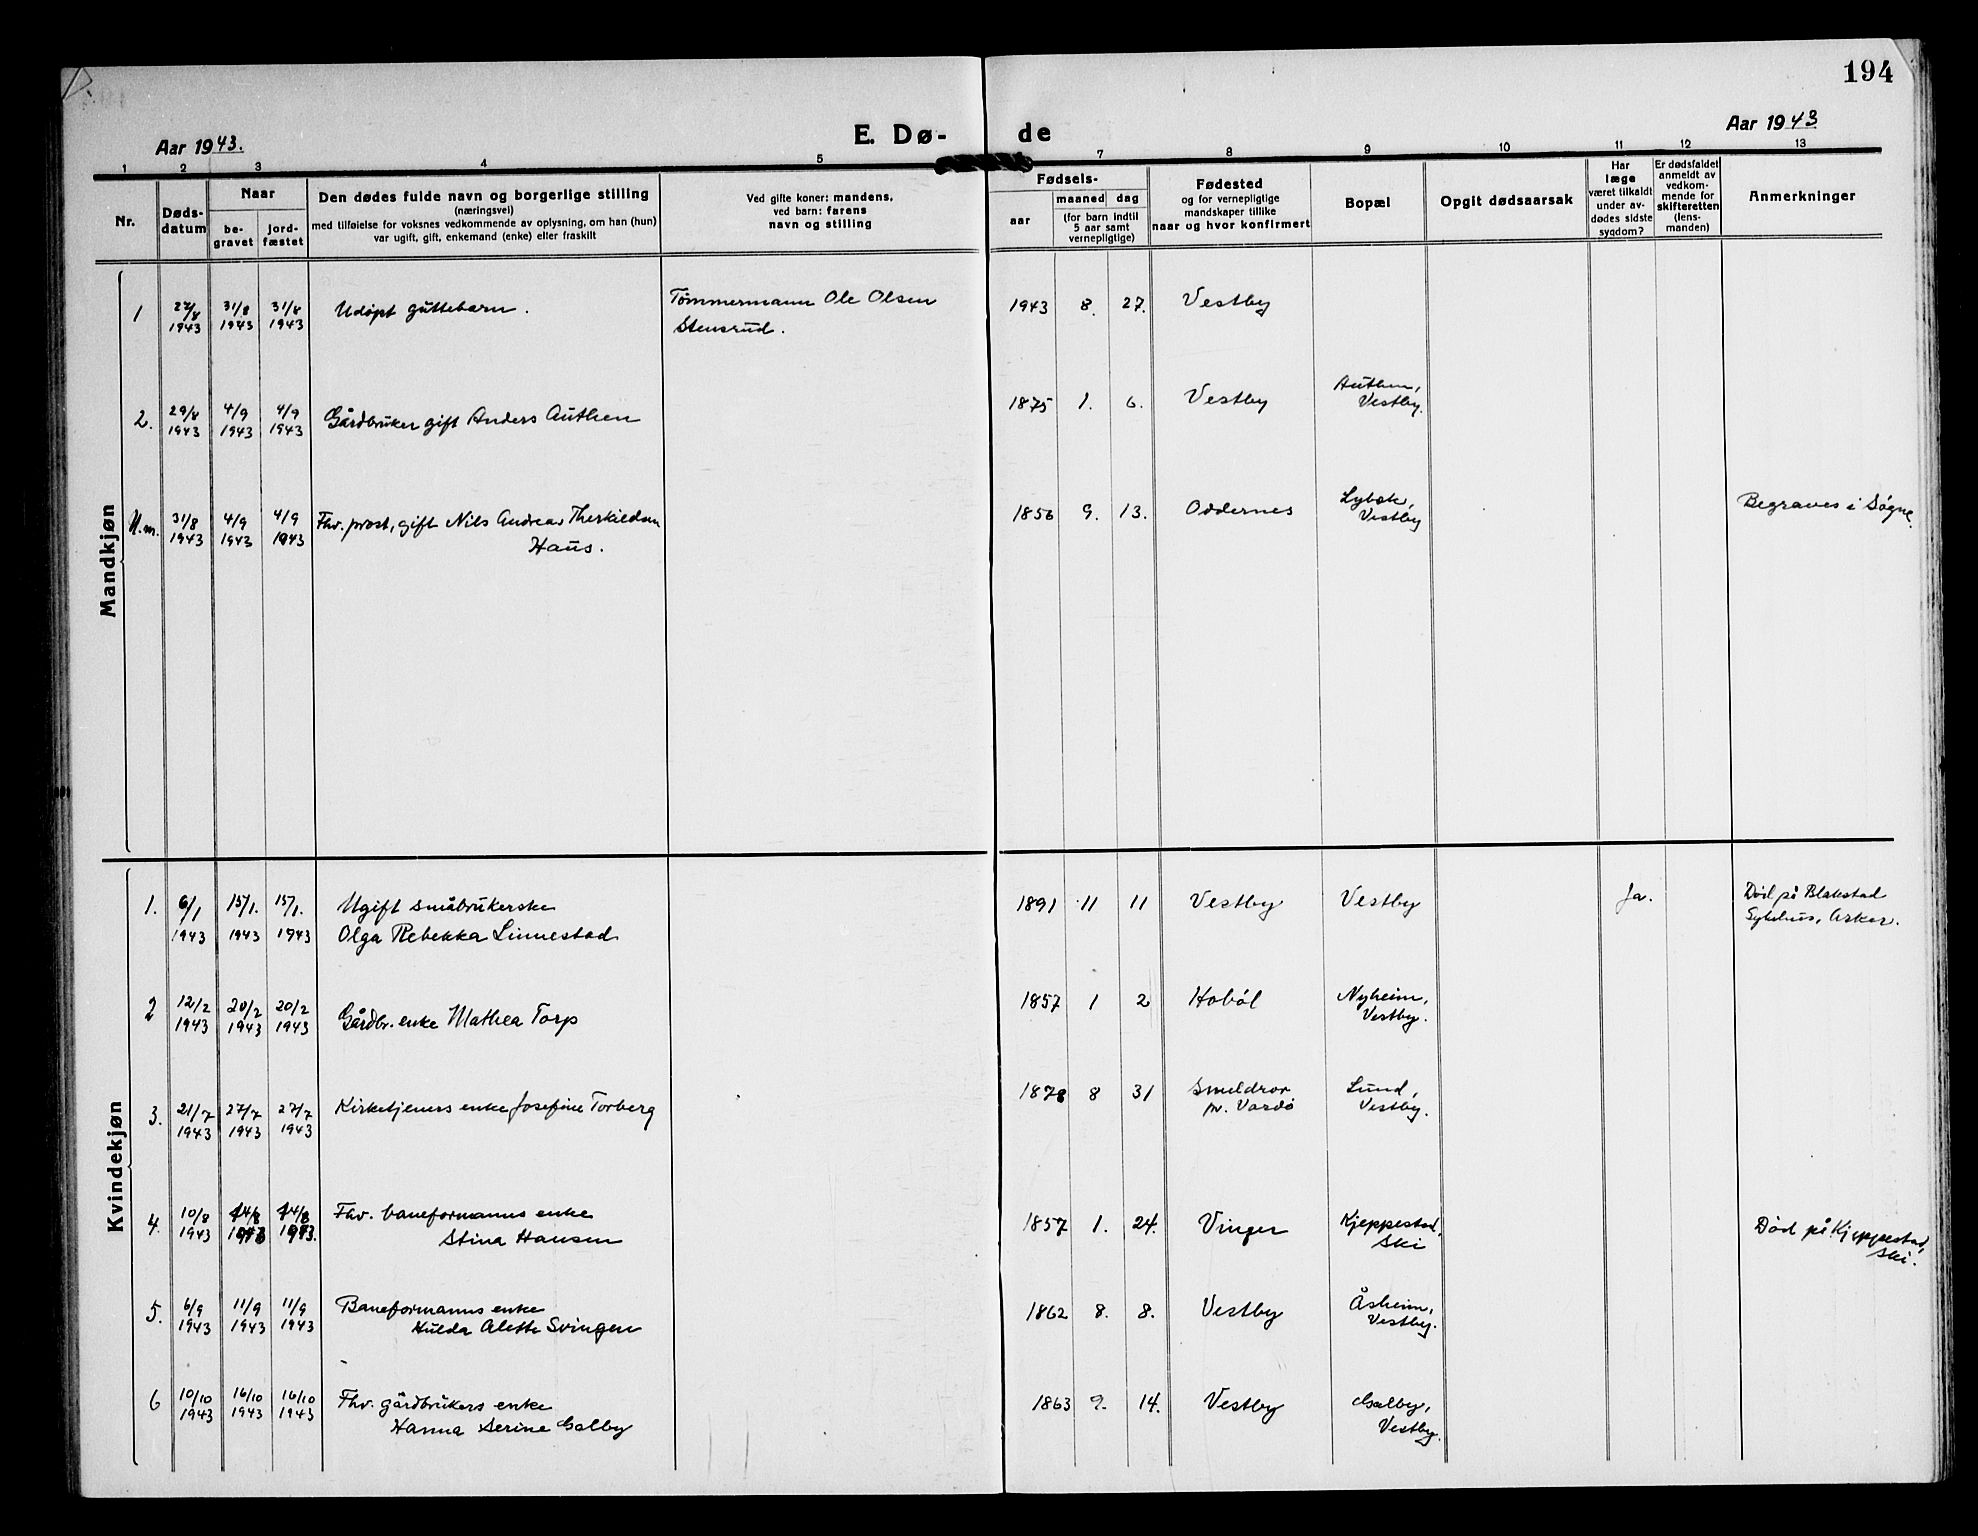 194
Aar 1943.
E. Dø-
de
Aar 1943
1 2 3 4 5 7 8 9 10 11 12 13
Nr.
Døds-
datum
Naar
be-
gravet
jord-
fæstet
Den dødes fulde navn og borgerlige stilling
(næringsvei)
med tilføielse for voksnes vedkommende av oplysning, om han (hun)
var ugift, gift, enkemand (enke) eller fraskilt
Ved gifte koner: mandens,
ved barn: farens
navn og stilling
Fødsels-
aar
maaned dag
(for barn indtil
5 aar samt
vernepligtige)
Fødested
og for vernepligtige
mandskaper tillike
naar og hvor konfirmert
Bopæl
Opgit dødsaarsak
Har
læge
været tilkaldt
under av-
dødes sidste
sygdom?
Er dødsfaldet
anmeldt av
vedkom-
mende for
skifteretten
(lens-
manden)
Anmerkninger
Mandkjøn
1 27/8 31/8 31/8 Udøpt guttebarn. Tømmermann Ole Olsen 1943 8. 27. Vestby
1943 1943 1943 Stensrud.
2. 29/8 4/9 4/9 Gårdbruker gift Anders Authen 1875 1. 6. Vestby Authen,
1943 1943 1943 Vestby.
U.m. 31/8 4/9 4/9 Fhv. prost, gift Nils Andreas Therkildsen 1856 9. 13. Oddernes Begraves i Søgne.
1943 1943 1943 Haus. Vestby
Kvindekjøn
1. 6/1 15/1. 15/1. Ugift småbrukerske 1891 11 11 Vestby Vestby Ja. Død på Blakstad
1943 1943 1943 Olga Rebekka Linnestad Sykehus, Asker.
2 12/2 20/2 20/2 Gårdbr. enke Mathea Torp 1857 1 2 Hobøl Nyheim,
1943 1943 1943 Vestby.
3. 21/7 27/7 27/7 Kirketjeners enke Josefine Torberg 1878 8 31 Smeldror Lund,
1943 1943 1943 pr. Vardø Vestby.
4. 10/8 14/8 14/8 Fhv. baneformanns enke 1857 1. 24. Vinger Kjeppestad, Død på Kjeppestad,
1943 1943 1943. Stina Hansen Ski Ski.
5. 6/9 11/9 11/9 Baneformanns enke 1862 8. 8. Vestby Åsheim,
1943 1943 1943 Hulda Alette Svingen Vestby.
6 10/10 16/10 16/10 Fhv. gårdbrukers enke 1863 9. 14. Vestby Galby,
1943 1943 1943 Hanna Serine Galby Vestby.